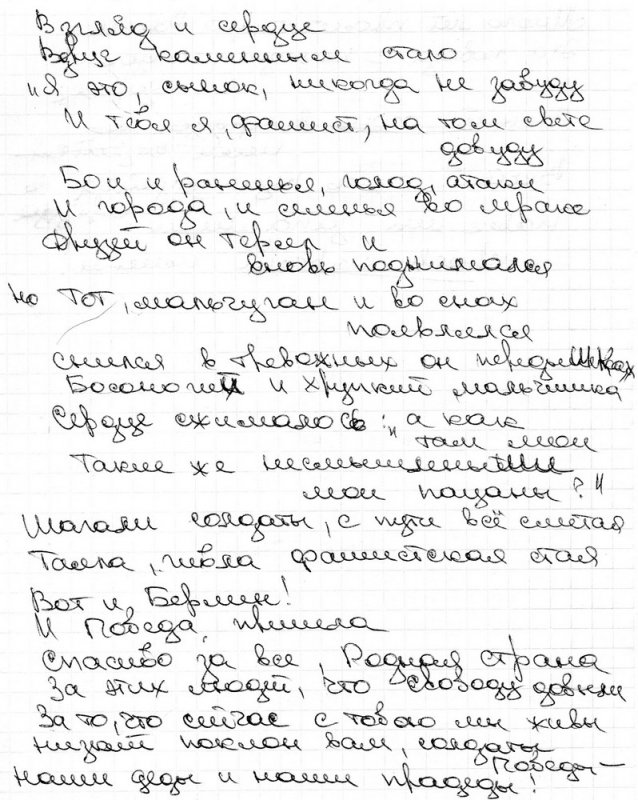 Взгляд и сердце
Вдруг каменным стало
"Я это, сынок, никогда не забуду
И тебя я, фашист, на том свете
добуду
Бои и раненья, голод, атаки
И города, и селенья во мраке
Друзей он терял и
вновь поднимался
Но тот, мальчуган и во снах
появлялся
Снился в тревожных он передышках
Босоногий и хрупкий мальчишка
Сердце сжималось: "а как
там мои
Такие же несмышлёныши
мои пацаны?"
Шагали солдаты, с пути всё сметая
Таяла, гибла фашистская стая
Вот и Берлин!
И Победа пришла
Спасибо за все, Родная страна
За этих людей, что свободу добыли
За то, что сейчас с тобою мы живы
низкий поклон вам, солдаты
Победы —
наши деды и наши прадеды!